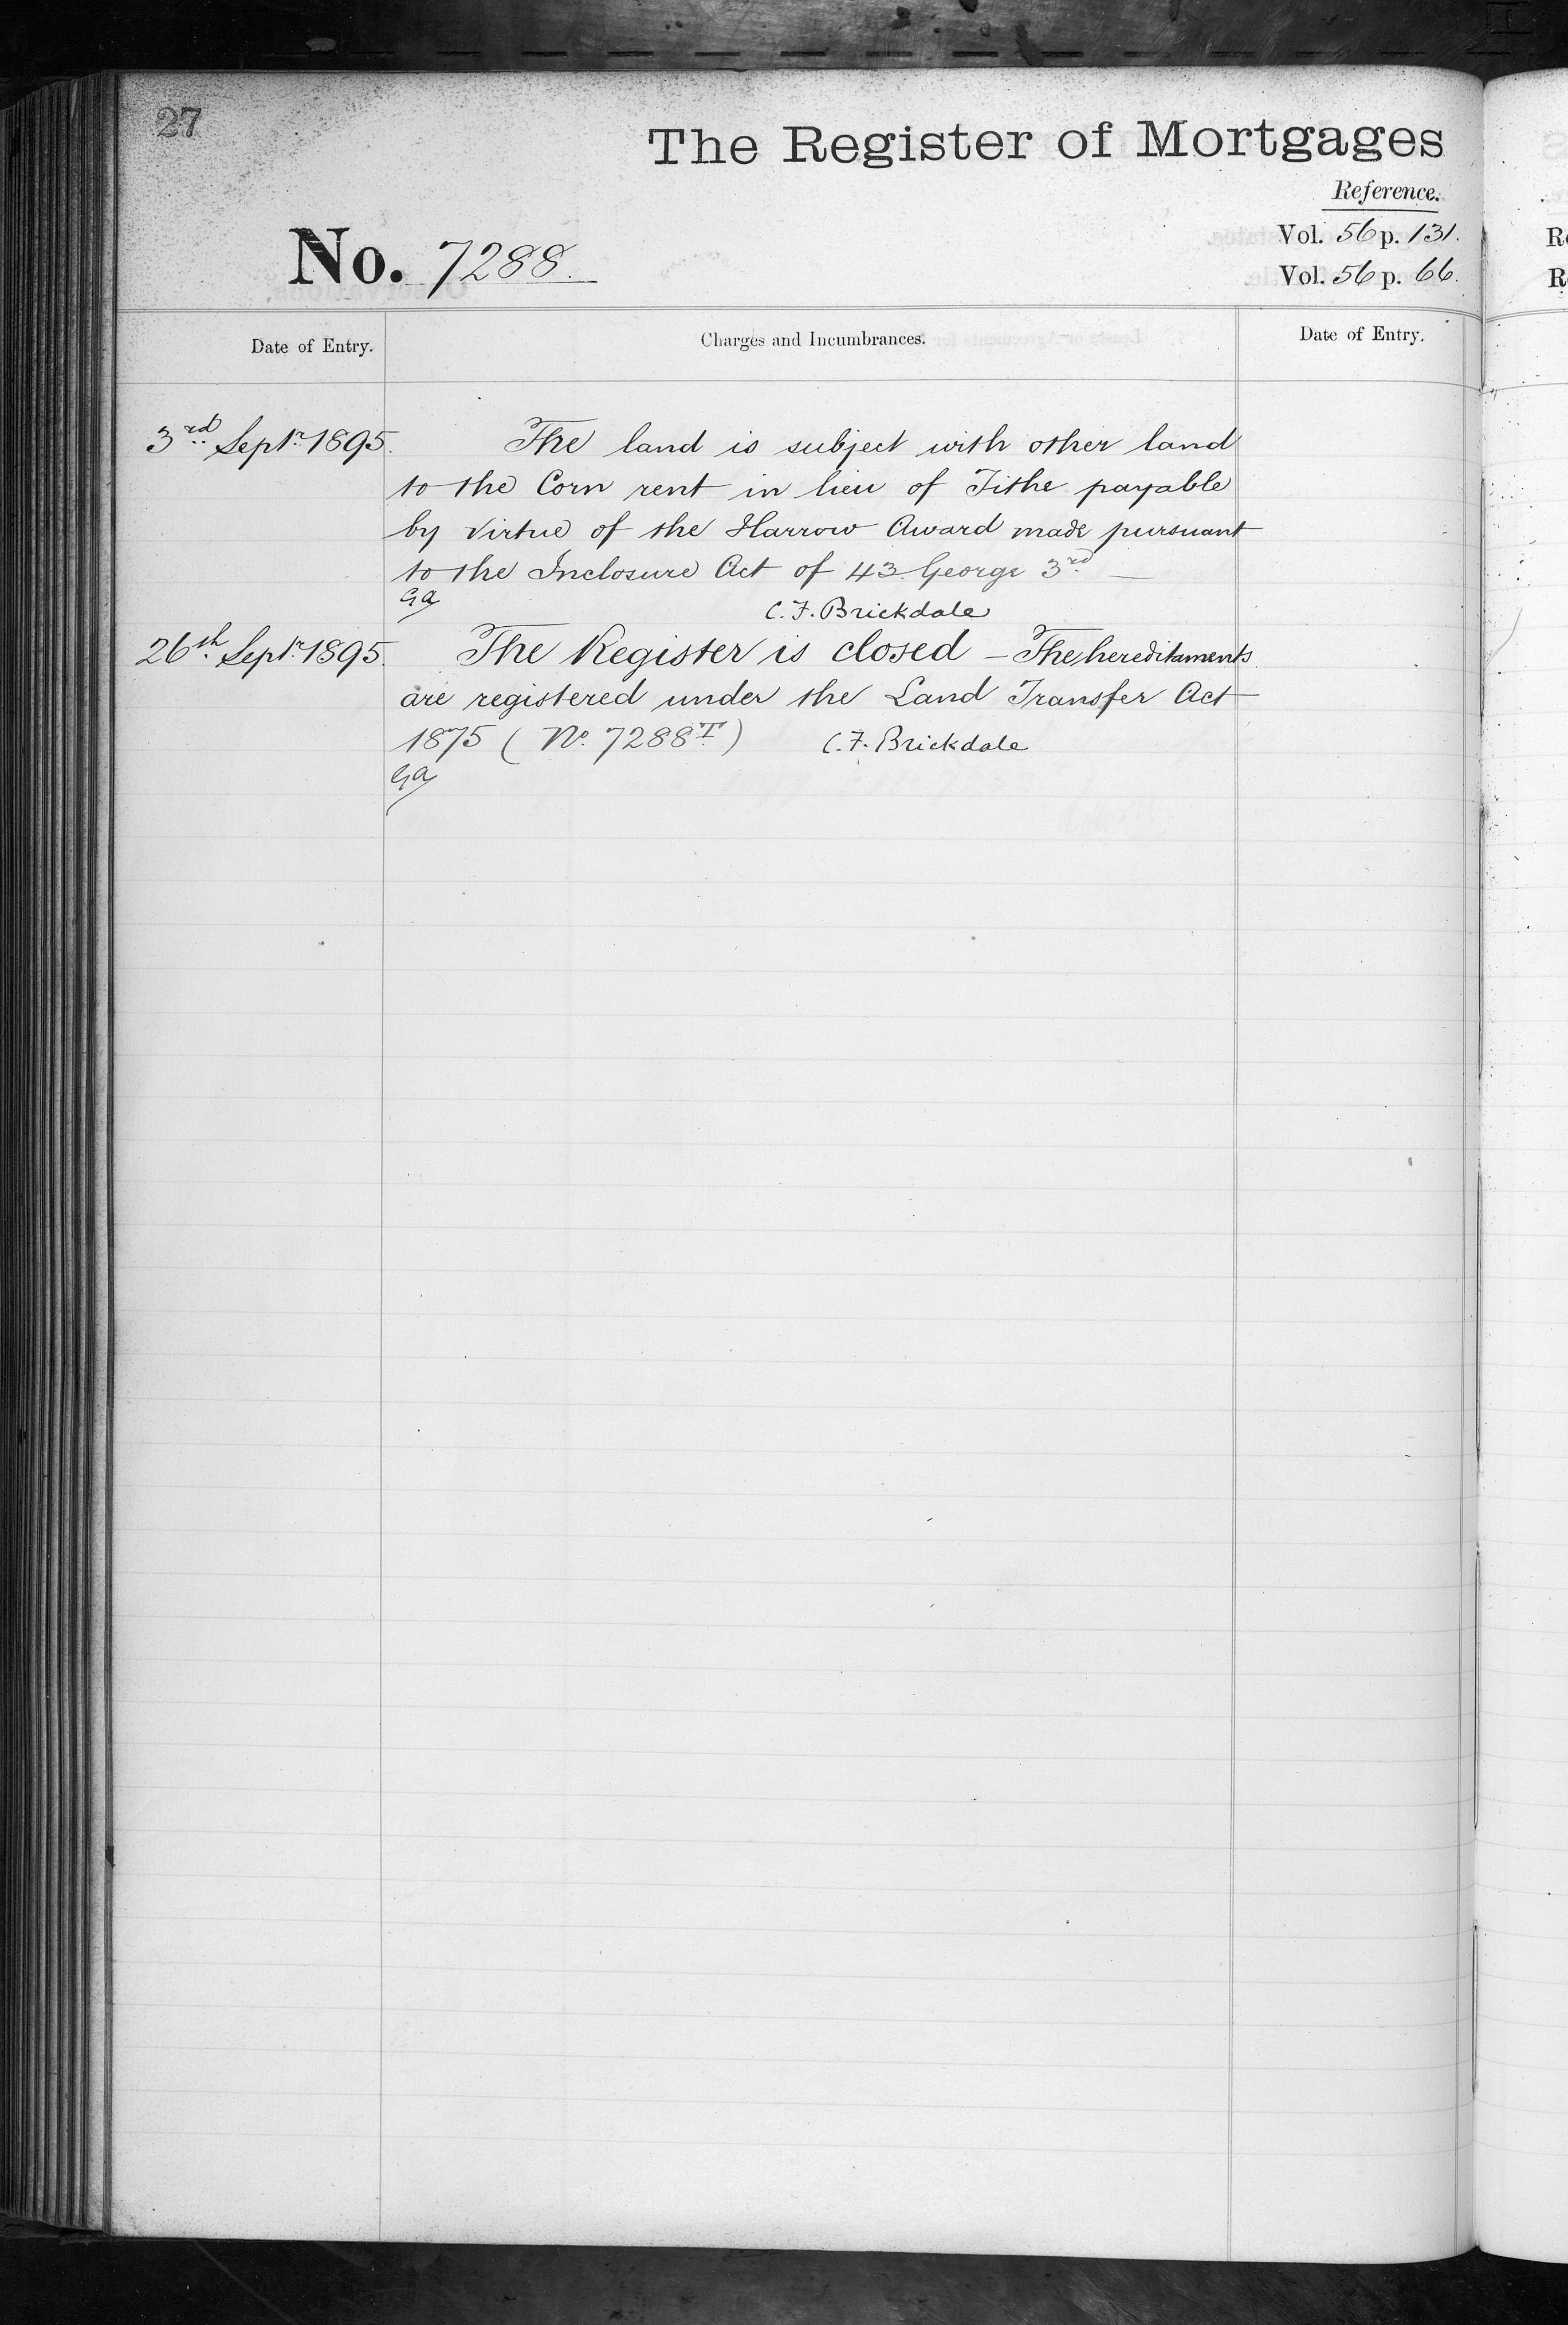 27
The Register of Mortgages
Reference.
No. 7288.
Vol. 56 p. 131.
Vol. 56 p. 66.
Date of Entry.
Charges and Incumbrances.
Date of Entry.
3rd Septr. 1895.
The land is subject with other land
to the Corn rent in lieu of Tithe payable
by virtue of the Harrow Award made pursuant
to the Inclosure Act of 43 George 3rd —
Ga
C. F. Brickdale
26th Septr. 1895.
The Register is closed — The hereditaments
are registered under the Land Transfer Act
1875 (No. 7288 T) C. F. Brickdale
Ga